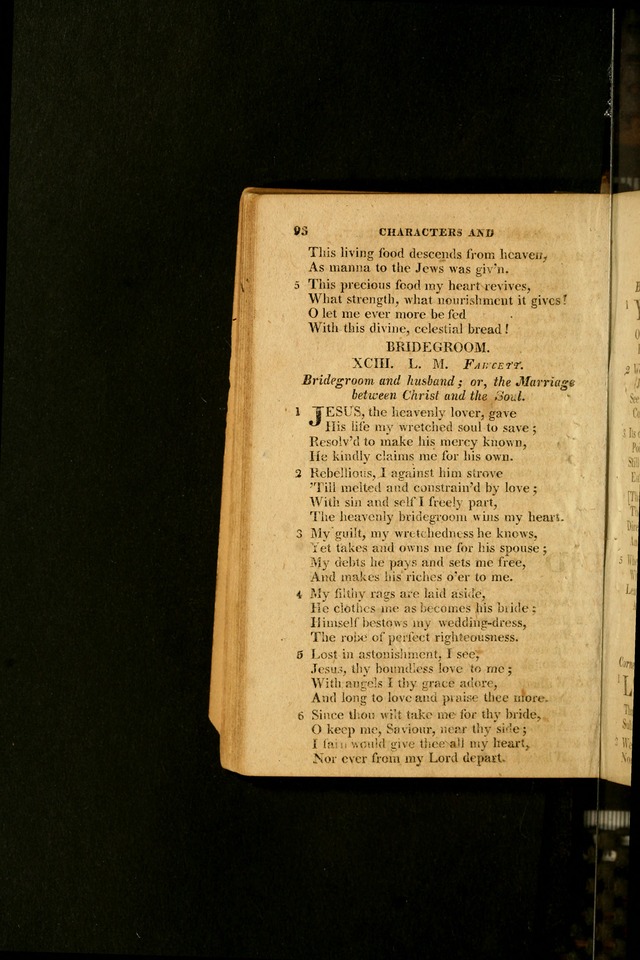 93 CHARACTERS AND
This living food descends from heaven,
As manna to the Jews was giv'n.
5 This precious food my heart revives,
What strength, what nourishment it gives!
O let me ever more be fed
With this divine, celestial bread!
BRIDEGROOM.
XCIII. L. M. FAWCETT.
Bridegroom and husband; or, the Marriage
between Christ and the Soul.
1 JESUS, the heavenly lover, gave
His life my wretched soul to save;
Resolv'd to make his mercy known,
He kindly claims me for his own.
2 Rebellious, I against him strove
'Till melted and constrain'd by love;
With sin and self I freely part,
The heavenly bridegroom wins my heart.
3 My guilt, my wretchedness he knows,
Yet takes and owns me for his spouse;
My debts he pays and sets me free,
And makes his riches o'er to me.
4 My filthy rags are laid aside,
He clothes me as becomes his bride;
Himself bestows my wedding-dress,
The robe of perfect righteousness.
5 Lost in astonishment, I see,
Jesus, thy boundless love to me;
With angels I thy grace adore,
And long to love and praise thee more.
6 Since thou wilt take me for thy bride,
O keep me, Saviour, near thy side;
I fain would give thee all my heart,
Nor ever from my Lord depart.